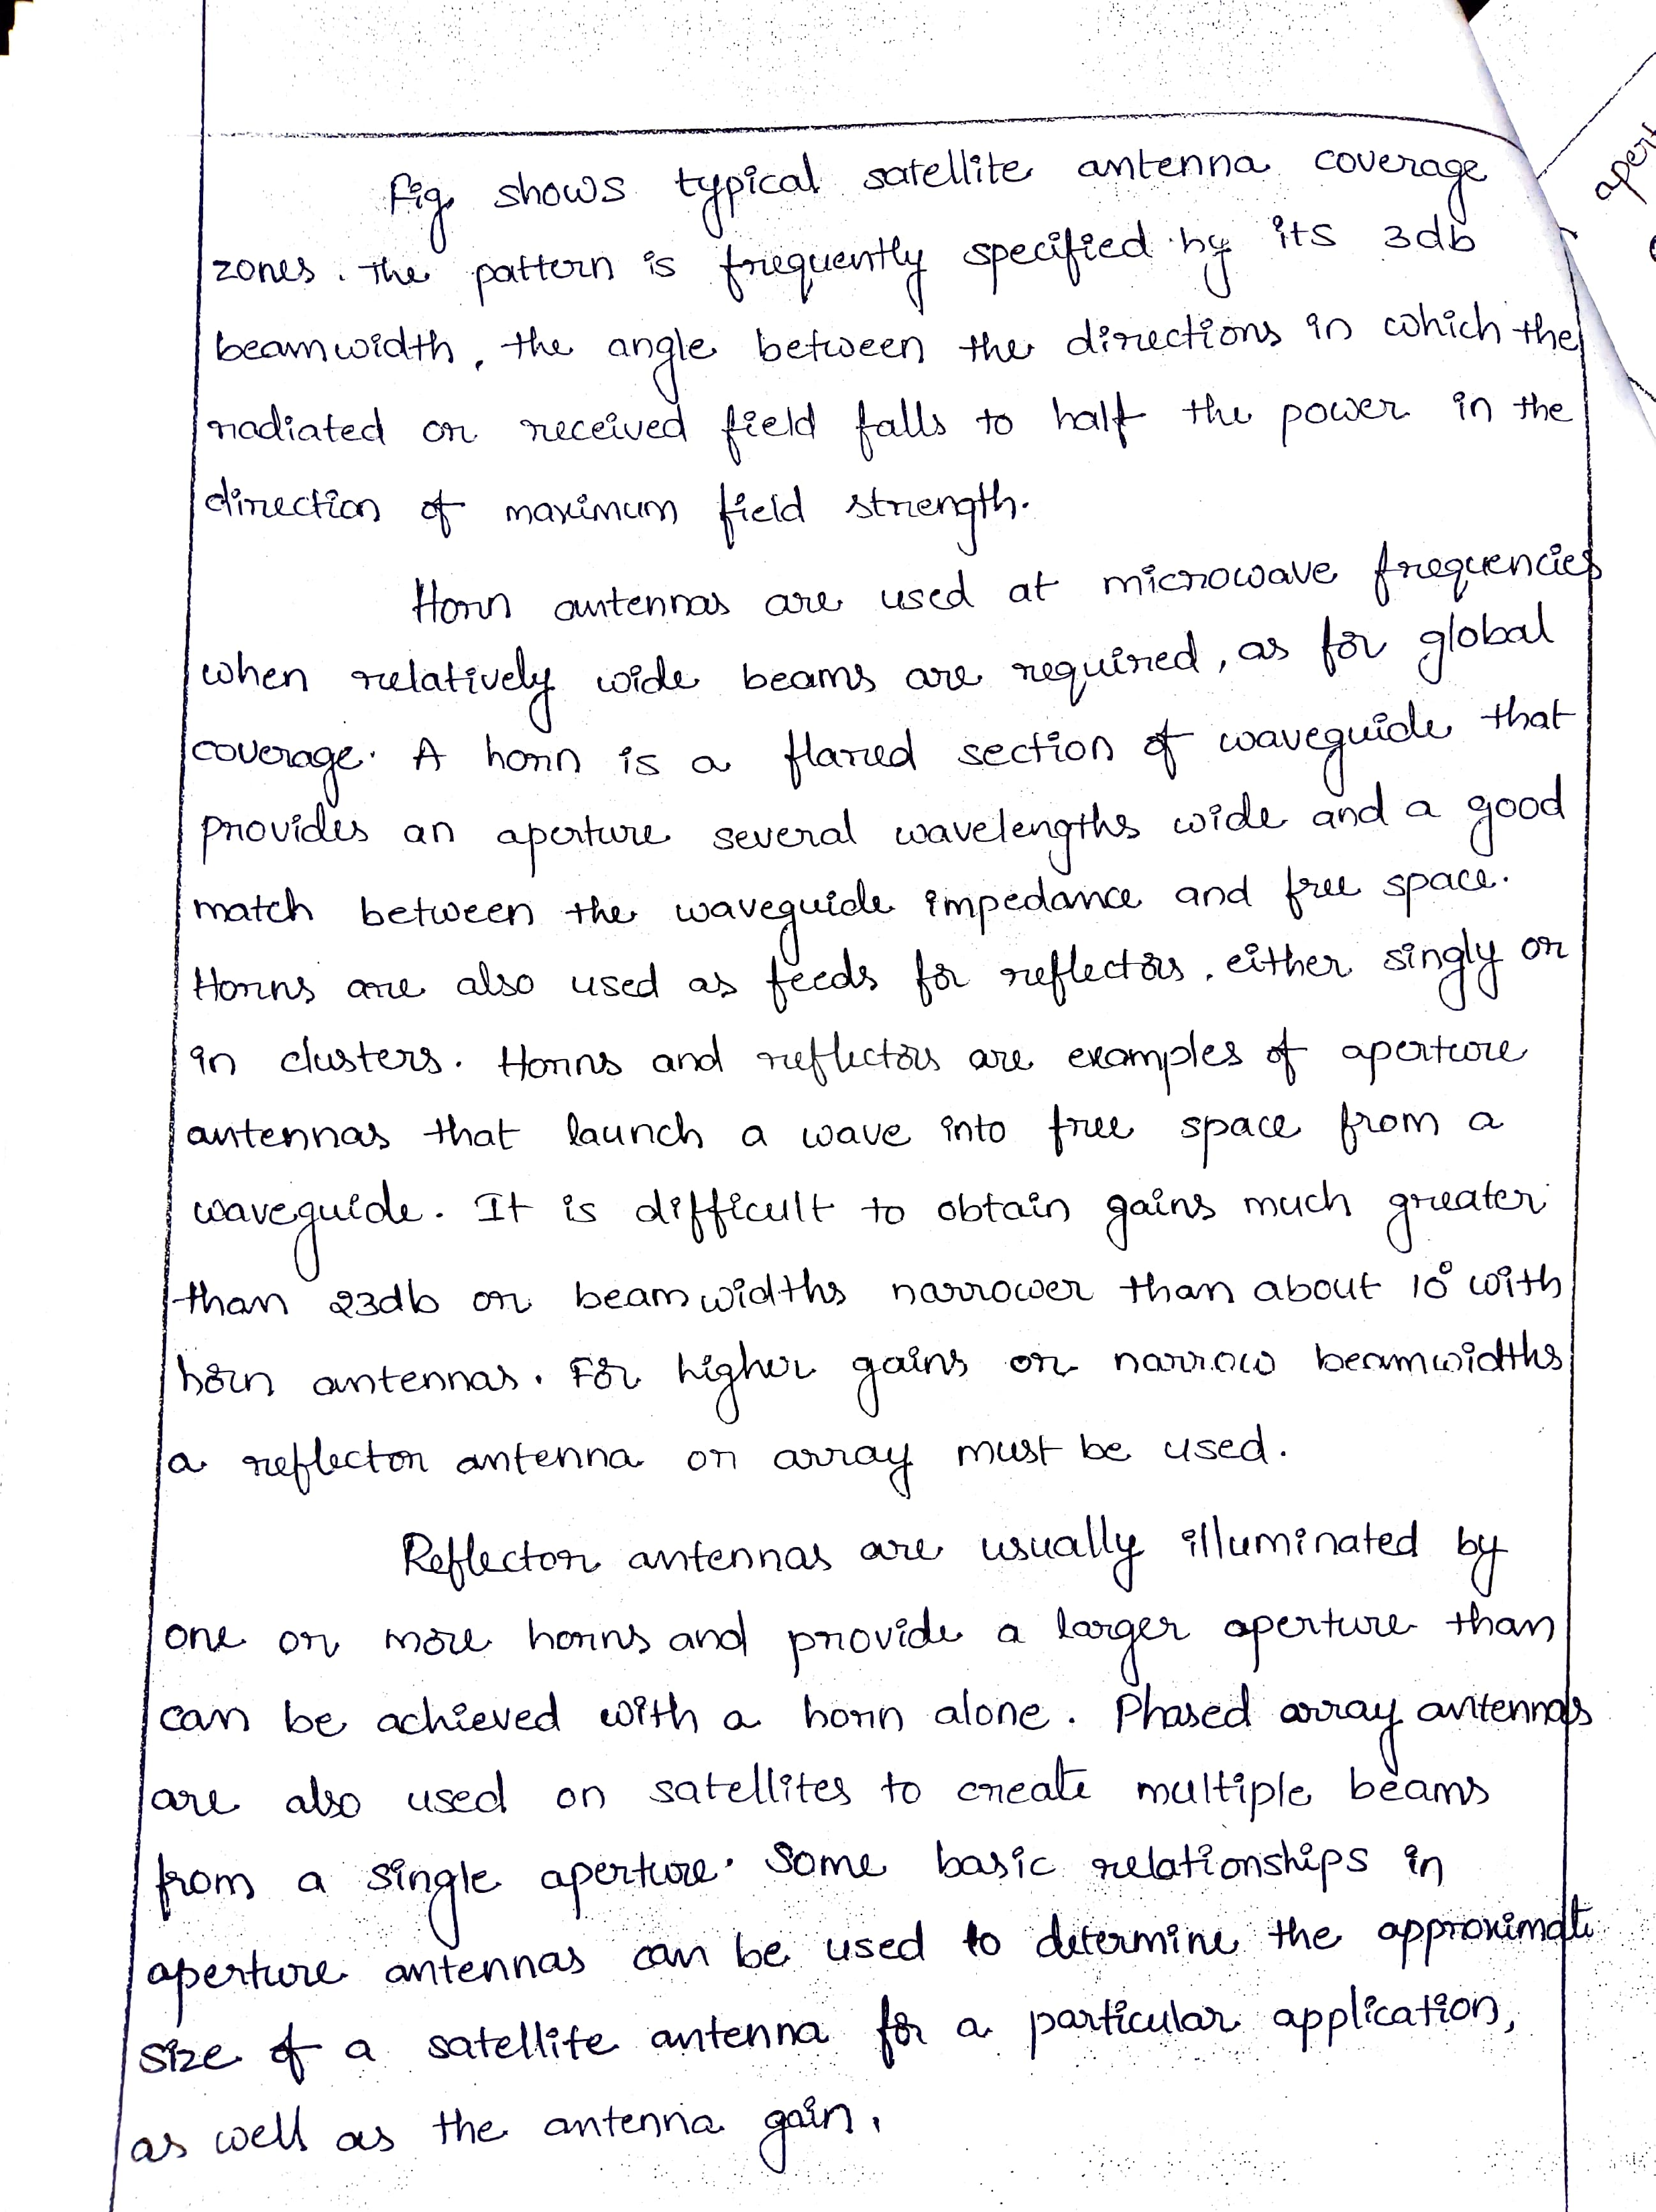 Fig shows typical satellite antenna coverage
zones. The pattern is frequently specified by its 3db
beamwidth, the angle between the directions in which the
radiated or received field falls to half the power in the
direction of maximum field strength.
Horn antennas are used at microwave frequencies
when relatively wide beams are required, as for global
coverage. A horn is a flared section of waveguide that
provides an aperture several wavelengths wide and a good
match between the waveguide impedance and free space.
Horns are also used as feeds for reflectors, either singly or
in clusters. Horns and reflectors are examples of aperture
antennas that launch a wave into free space from a
waveguide. It is difficult to obtain gains much greater
than 23db or beamwidths narrower than about 10° with
horn antennas. For higher gains or narrow beamwidths
a reflector antenna or array must be used.
Reflector antennas are usually illuminated by
one or more horns and provide a larger aperture than
can be achieved with a horn alone. Phased array antennas
are also used on satellites to create multiple beams
from a single aperture. Some basic relationships in
aperture antennas can be used to determine the approximate
size of a satellite antenna for a particular application,
as well as the antenna gain.